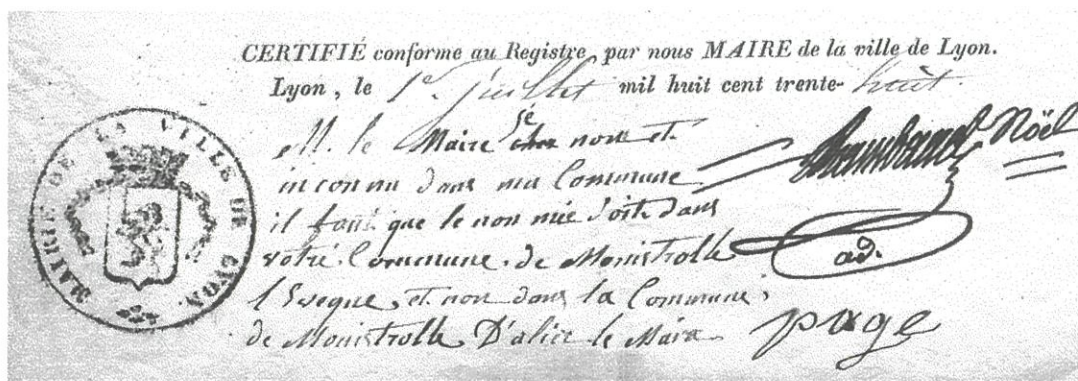 CERTIFIÉ conforme au Registre, par nous MAIRE de la ville de Lyon.
Lyon, le 1er juillet mil huit cent trente-huit.
M. le Maire sé non et
inconnu dans ma Commune
il faut que le non mée soit dans
votre Commune de Monistrolle
l'Eveque, et non dans la Commune
de Monistrolle D'alier le Maire
Noël
ad.
page
MAIRIE DE LA VILLE DE LYON.